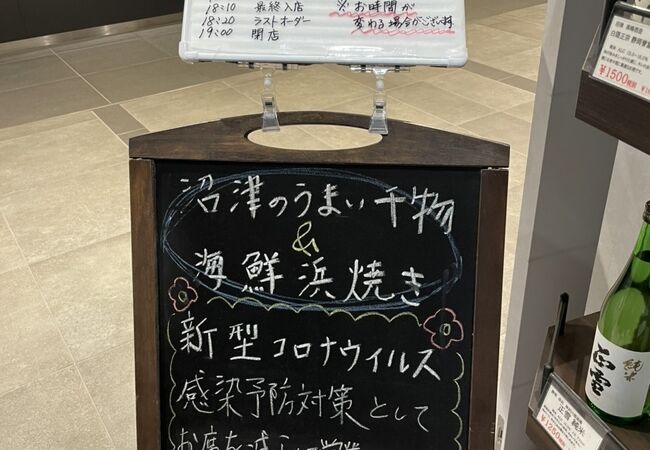 18:10 最終入店
18:20 ラストオーダー
19:00 閉店
※お時間が
変わる場合がございます
沼津のうまい干物
&
海鮮浜焼き
新型コロナウイルス
感染予防対策として
お席を減らして
白隠正宗
¥1500
純米
正雪
正雪 純米
¥1250